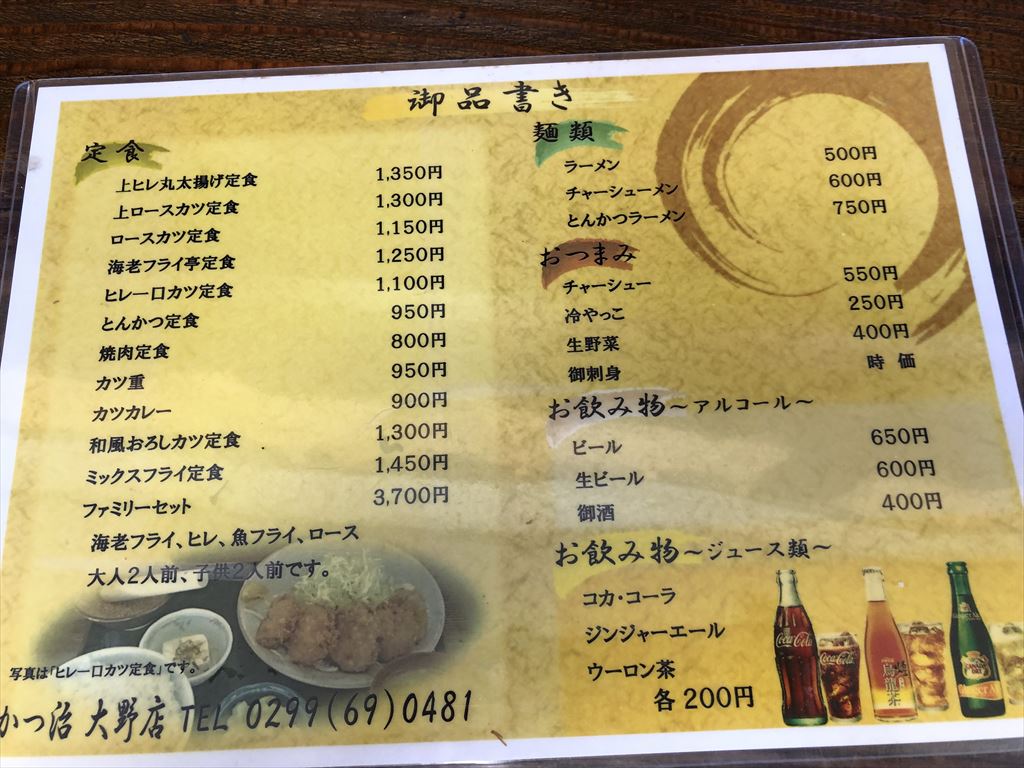 御品書き
定食
上ヒレ丸太揚げ定食 1,350円
上ロースカツ定食 1,300円
ロースカツ定食 1,150円
海老フライ亭定食 1,250円
ヒレ一口カツ定食 1,100円
とんかつ定食 950円
焼肉定食 800円
カツ重 950円
カツカレー 900円
和風おろしカツ定食 1,300円
ミックスフライ定食 1,450円
ファミリーセット 3,700円
海老フライ、ヒレ、魚フライ、ロース
大人2人前、子供2人前です。
写真は「ヒレ一口カツ定食」です。
かつ治 大野店 TEL 0299(69)0481
麺類
ラーメン 500円
チャーシューメン 600円
とんかつラーメン 750円
おつまみ
チャーシュー 550円
冷やっこ 250円
生野菜 400円
御刺身 時価
お飲み物～アルコール～
ビール 650円
生ビール 600円
御酒 400円
お飲み物～ジュース類～
コカ・コーラ
ジンジャーエール
ウーロン茶
各200円
Coca-Cola
Coca-Cola
烏龍茶